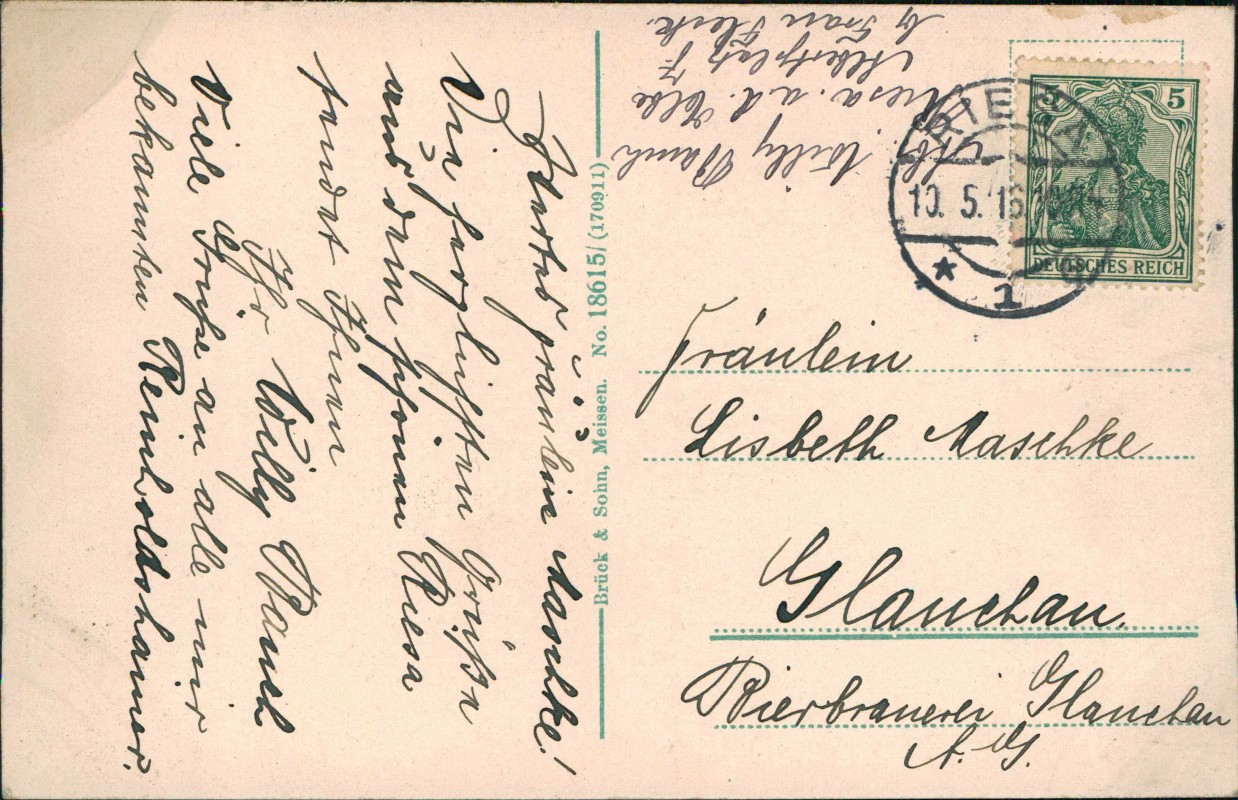 Wertes Fräulein Maschke!
Die herzlichsten Grüße
aus dem schönen Riesa
sendet Ihnen
Ihr Willy Bauch
Viele Grüße an alle mir
bekannten Reinholdshainer.
Brück & Sohn, Meissen. No. 18615/(170911)
Abs. Willy Bauch
Riesa a.d. Elbe
Albertplatz 7.
by Frau Fleck.
RIESA
10.5.16
* 1
5 5
DEUTSCHES REICH
Fräulein
Lisbeth Maschke
Glauchau.
Bierbrauerei Glauchau
A.G.